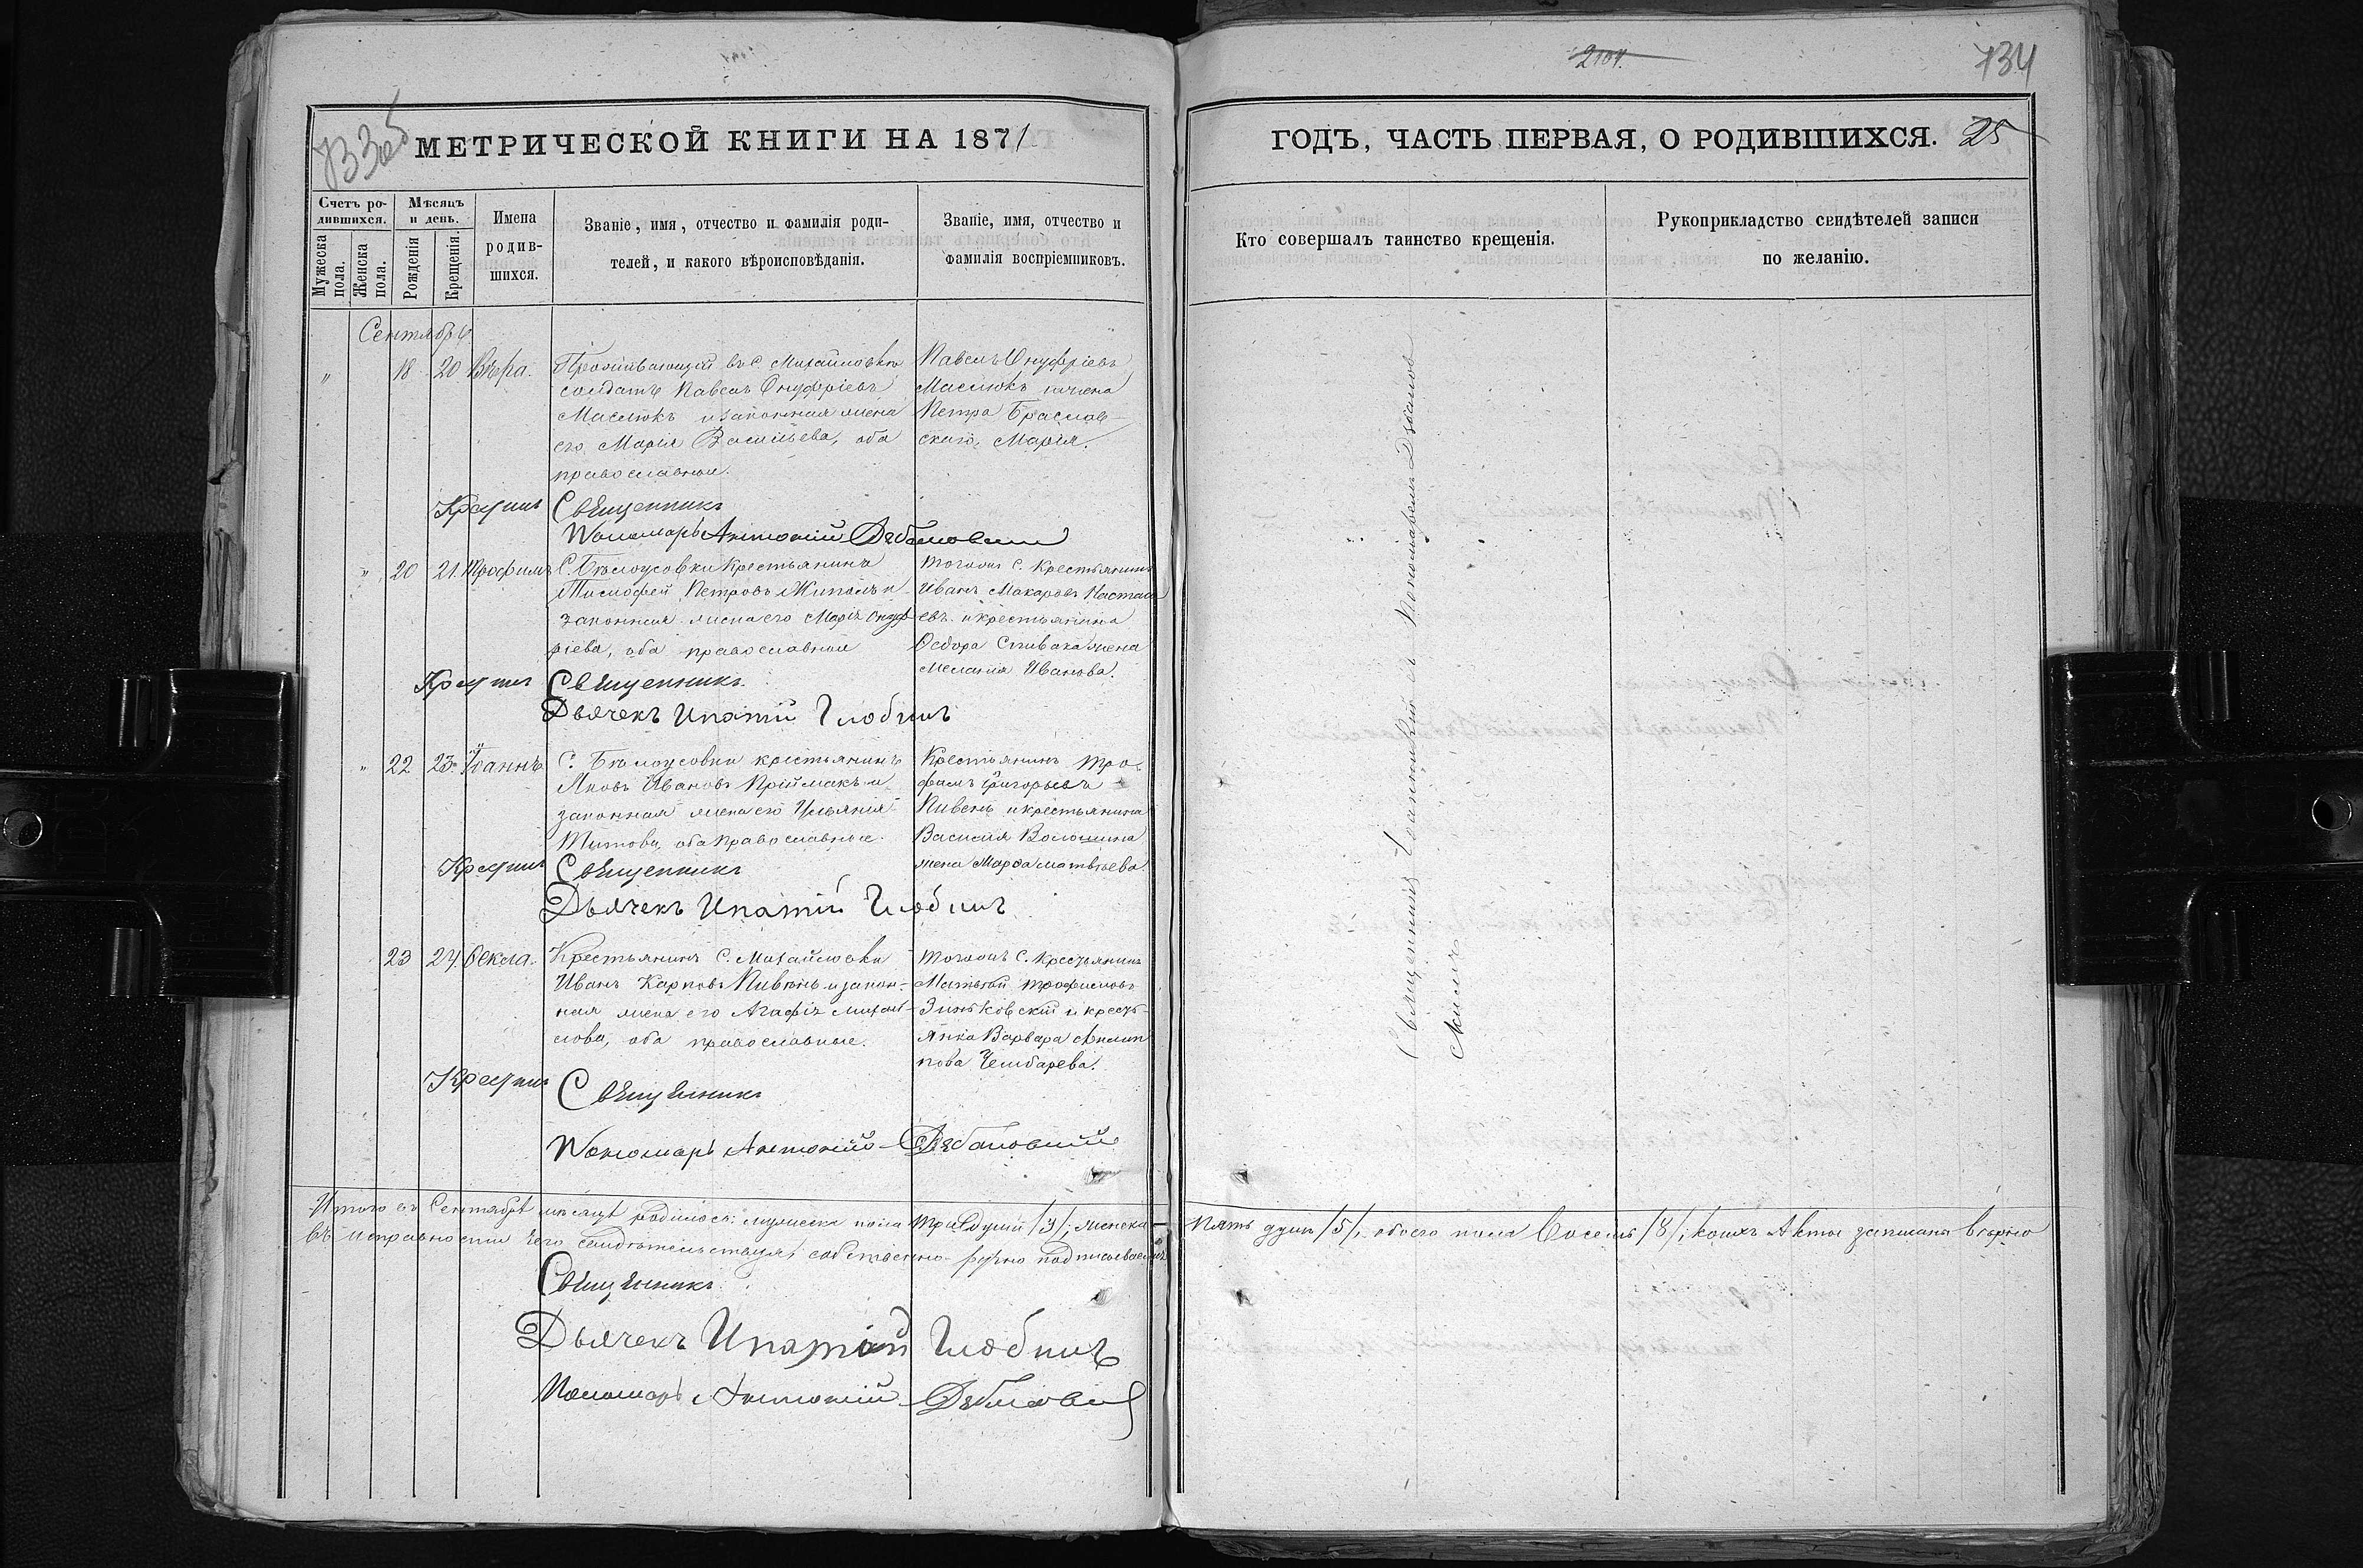 733 об
МЕТРИЧЕСКОЙ КНИГИ НА 1871
Счетъ ро-
дившихся.
Мѣсяцъ
и день.
Мужеска
пола.
Женска
пола.
Рожденія
Крещенія.
Имена
родив-
шихся.
Званіе, имя, отчество и фамилія роди-
телей, и какого вѣроисповѣданія.
Званіе, имя, отчество и
фамилія воспріемниковъ.
Сентябрь
" 18 20 Вѣра.
Проживающій въ С. Михайловки
солдатъ Павелъ Онуфріевъ
Маслюкъ и законная жена
его Марія Васильева, оба
православные.
Павелъ Онуфріевъ
Маслюкъ и жена
Петра Браслав-
скаго, Марія.
Крестилъ Священникъ
Пономарь Антоній
" 20 21. Трофимъ
С. Бѣлоусовки Крестьянинъ
Тимофей Петровъ и
законная жена его Марія Онуф-
ріева, оба православные
Тогожъ С. Крестьянинъ
Иванъ Макаровъ
евъ и крестьянина
Ѳедора Спивака жена
Меланія Иванова.
Крестилъ Священникъ
Дьячекъ Ипатій
" 22 23. Іоаннъ
С. Бѣлоусовки крестьянинъ
Яковъ Ивановъ Приймакъ и
законная жена его Ульянія
Титова, оба православные.
Крестьянинъ Тро-
фимъ Григорьевъ
Пивень и крестьянина
Василія Волошина
жена Марѳа Матвѣева.
Крестилъ Священникъ
Дьячекъ Ипатій
23 24. Ѳекла.
Крестьянинъ С. Михайловки
Иванъ Карповъ Пивень и закон-
ная жена его Агафія Михай-
лова, оба православные.
Тогожъ С. Крестьянинъ
Матвѣй Трофимовъ
Зинковскій и кресть-
янка Варвара Филип-
пова Чембарева.
Крестилъ Священникъ
Пономарь Антоній
Итого въ Сентябрѣ мѣсяцѣ родилось: мужеска пола три души /3/, женска-
въ исправности чего свидѣтельствуя, собственно-ручно подписываемъ
Священникъ
Дьячекъ Ипатій
Пономарь Антоній
2104.
734
ГОДЪ, ЧАСТЬ ПЕРВАЯ, О РОДИВШИХСЯ. 25
Кто совершалъ таинство крещенія.
Рукоприкладство свидѣтелей записи
по желанію.
Священникъ Іоанникій съ Пономаремъ
Пять душъ /5/, обоего пола Восемь /8/, коихъ Акты записаны вѣрно